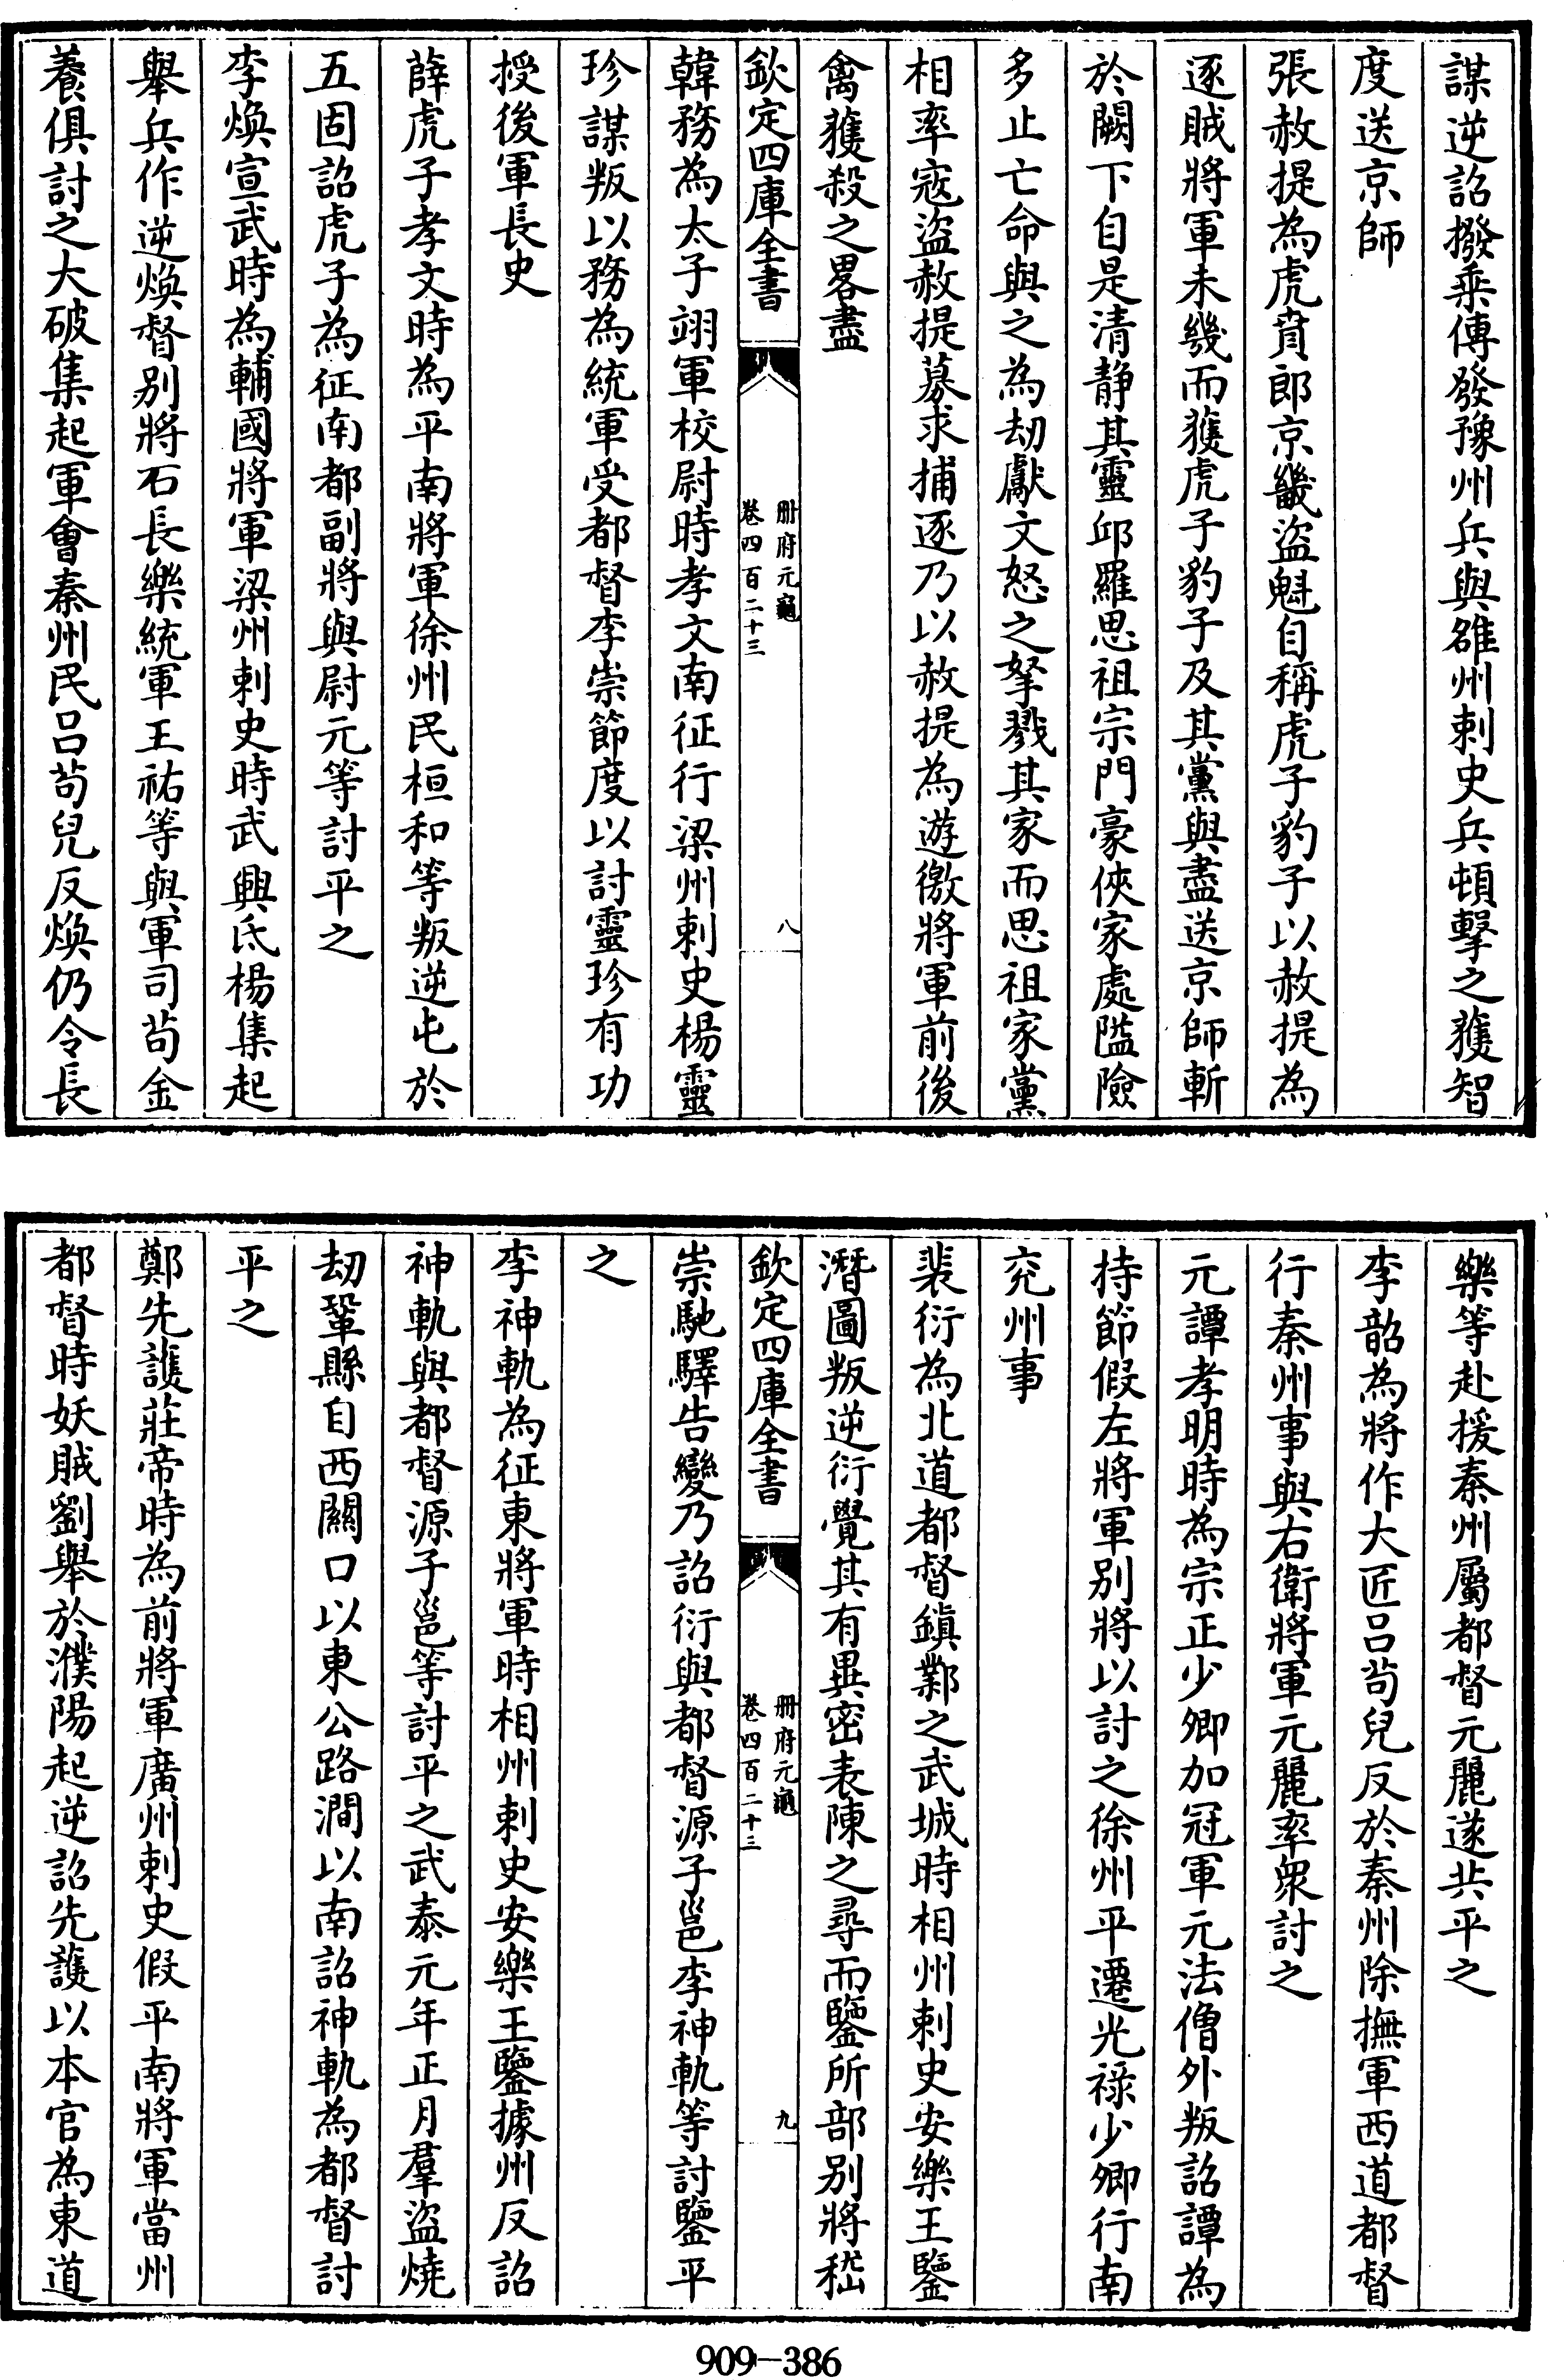 謀逆詔撥乘傳發豫州兵與雒州刺史兵頓擊之獲智
度送京師
張赦提為虎賁郎京畿盜魁自稱虎子豹子以赦提為
逐賊將軍未幾而獲虎子豹子及其黨與盡送京師斬
於闕下自是清靜其靈邱羅思祖宗門豪俠家處隘險
多止亡命與之為劫獻文怒之孥戮其家而思祖家黨
相率寇盜赦提募求捕逐乃以赦提為遊徼將軍前後
禽獲殺之畧盡
欽定四庫全書 冊府元龜 卷四百二十三 八
韓務為太子翊軍校尉時孝文南征行梁州刺史楊靈
珍謀叛以務為統軍受都督李崇節度以討靈珍有功
授後軍長史
薛虎子孝文時為平南將軍徐州民桓和等叛逆屯於
五固詔虎子為征南都副將與尉元等討平之
李煥宣武時為輔國將軍梁州刺史時武興氐楊集起
舉兵作逆煥督別將石長樂統軍王祐等與軍司苟金
養俱討之大破集起軍會秦州民呂苟兒反煥仍令長
樂等赴援秦州屬都督元麗遂共平之
李韶為將作大匠呂苟兒反於秦州除撫軍西道都督
行秦州事與右衛將軍元麗率衆討之
元譚孝明時為宗正少卿加冠軍元法僧外叛詔譚為
持節假左將軍別將以討之徐州平遷光祿少卿行南
兖州事
裴衍為北道都督鎮鄴之武城時相州刺史安樂王鑒
潛圖叛逆衍覺其有異密表陳之尋而鑒所部別將嵇
欽定四庫全書 冊府元龜 卷四百二十三 九
崇馳驛告變乃詔衍與都督源子邕李神軌等討鑒平
之
李神軌為征東將軍時相州刺史安樂王鑒據州反詔
神軌與都督源子邕等討平之武泰元年正月羣盜燒
劫鞏縣自西闗口以東公路澗以南詔神軌為都督討
平之
鄭先護莊帝時為前將軍廣州刺史假平南將軍當州
都督時妖賊劉舉於濮陽起逆詔先護以本官為東道
909—386